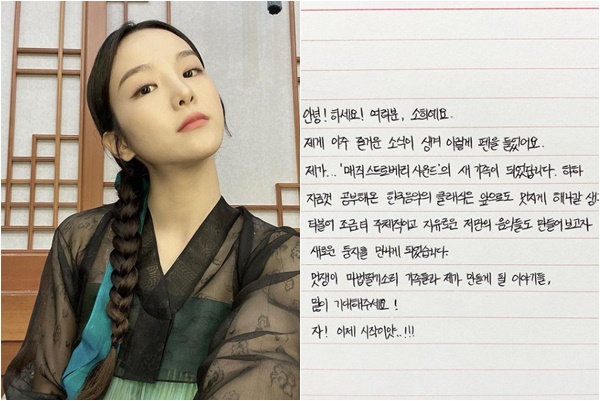 안녕! 하세요! 여러분, 소희예요.
제게 아주 즐거운 소식이 생겨 이렇게 펜을 들었어요.
제가... '매직스트로베리 사운드'의 새 가족이 되었답니다. 하하
지금껏 공부해온 한국음악의 클래식은 앞으로도 멋지게 해나갈 생
더불어 조금 더 주체적이고 자유로운 저만의 음악들도 만들어보고자
새로운 둥지를 만나게 되었습니다.
멋쟁이 마법딸기소리 가족들과 제가 만들게 될 이야기들,
많이 기대해주세요!
자! 이제 시작이얏..!!!